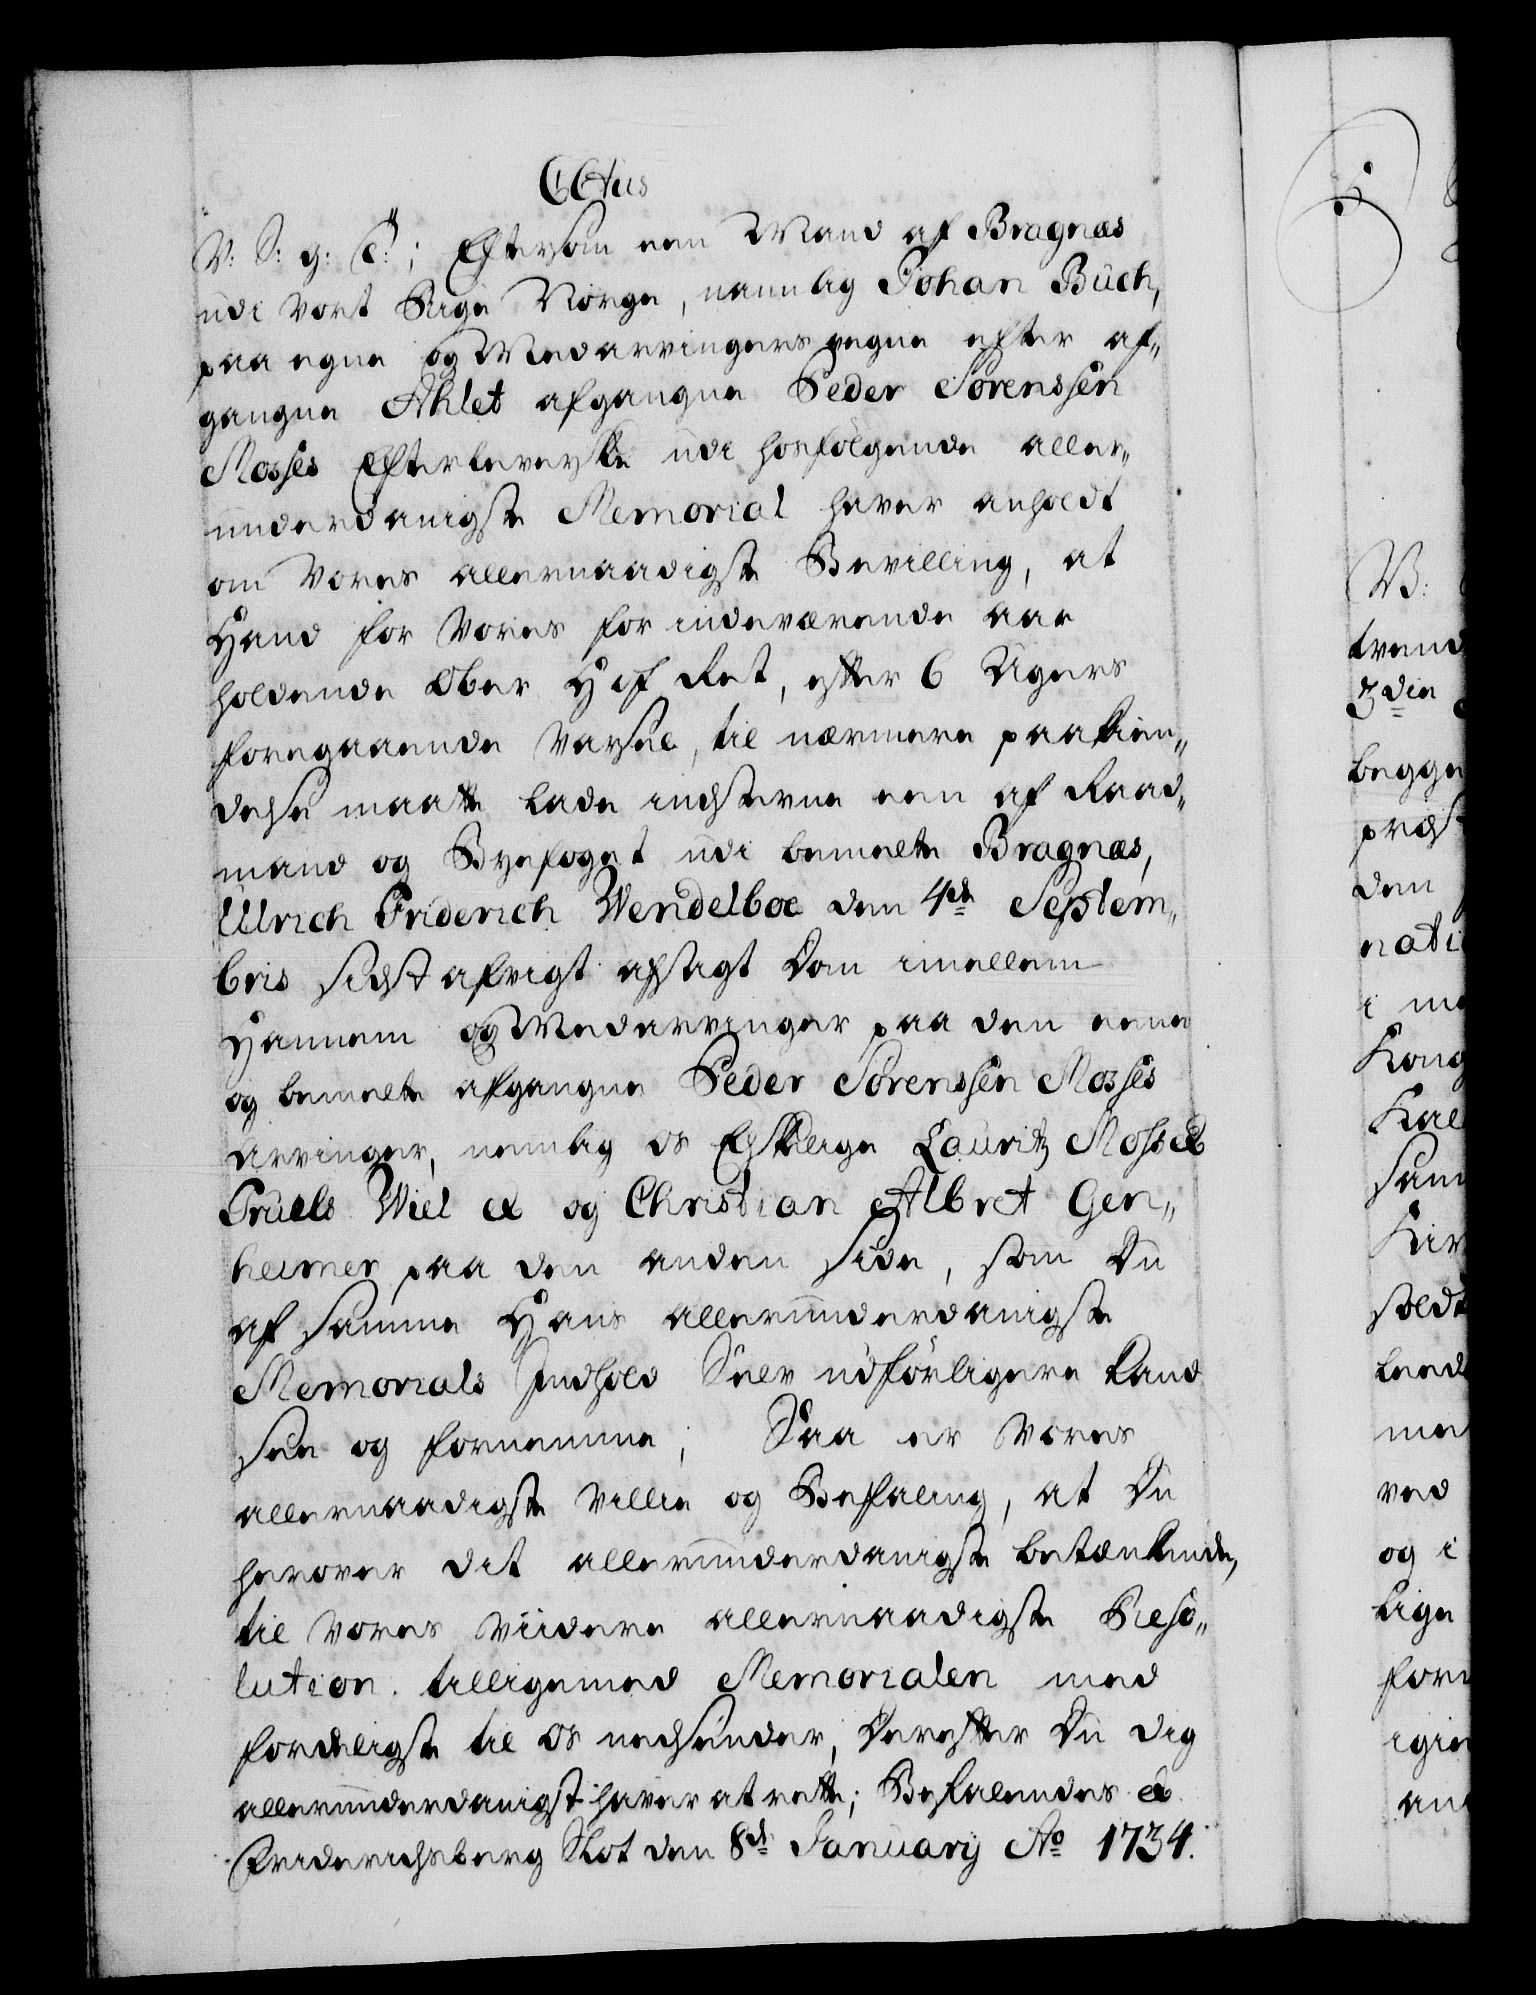 C6tus
V: S: g: T:; Eftersom een Mand af Bragnæs
udi vort Rige Norge, naunlig Johan Buch,
paa egne og Medarvingers vegne efter af„
gangne Ahlet afgangne Peder Sørenssen
Mosses Efterleverske udi hosfølgende aller„
underdanigste Memorial haver anholdt
om Vores allernaadigste Bevilling, at
Hand for Vores for indeværende aar
holdende Ober Hof Ret, efter 6 Ugers
foregaaende Varsel, til nærmere paakien„
delse maatte lade indstevne een af Raad„
mand og Byefoget udi bemelte Bragnæs,
Ulrich Friderich Wendelboe den 4de Septem„
bris sidst afvigt afsagt Dom imellem
Hannem og Medarvinger paa den eene
og bemelte afgangne Peder Sørenssen Mosses
Arvinger, nemlig os Elskelige Lauritz Mosse &
Truels Wiel & og Christian Albret Gen„
heimer paa den anden side, som Du
af samme Hans allerunderdanigste
Memorials Indhold Selv udførligere kand
see og fornemme; Saa er Vores
allernaadigste Villie og Befaling, at Du
herover dit allerunderdanigste betænkende,
til Vores viidere allernaadigste Reso„
lution. tilligemed Memorialen med
forderligste til Os nedsender, Derefter Du dig
allerunderdanigst haver at rette; Befalendes &
Friderichsberg Slot den 8de January Ao 1734.
V:
trend
3die
begge
præst
den
nati
i me
Kong
Kal
sam
Kir
soldt
leed
me
ved
og i
lige
for
igie
an